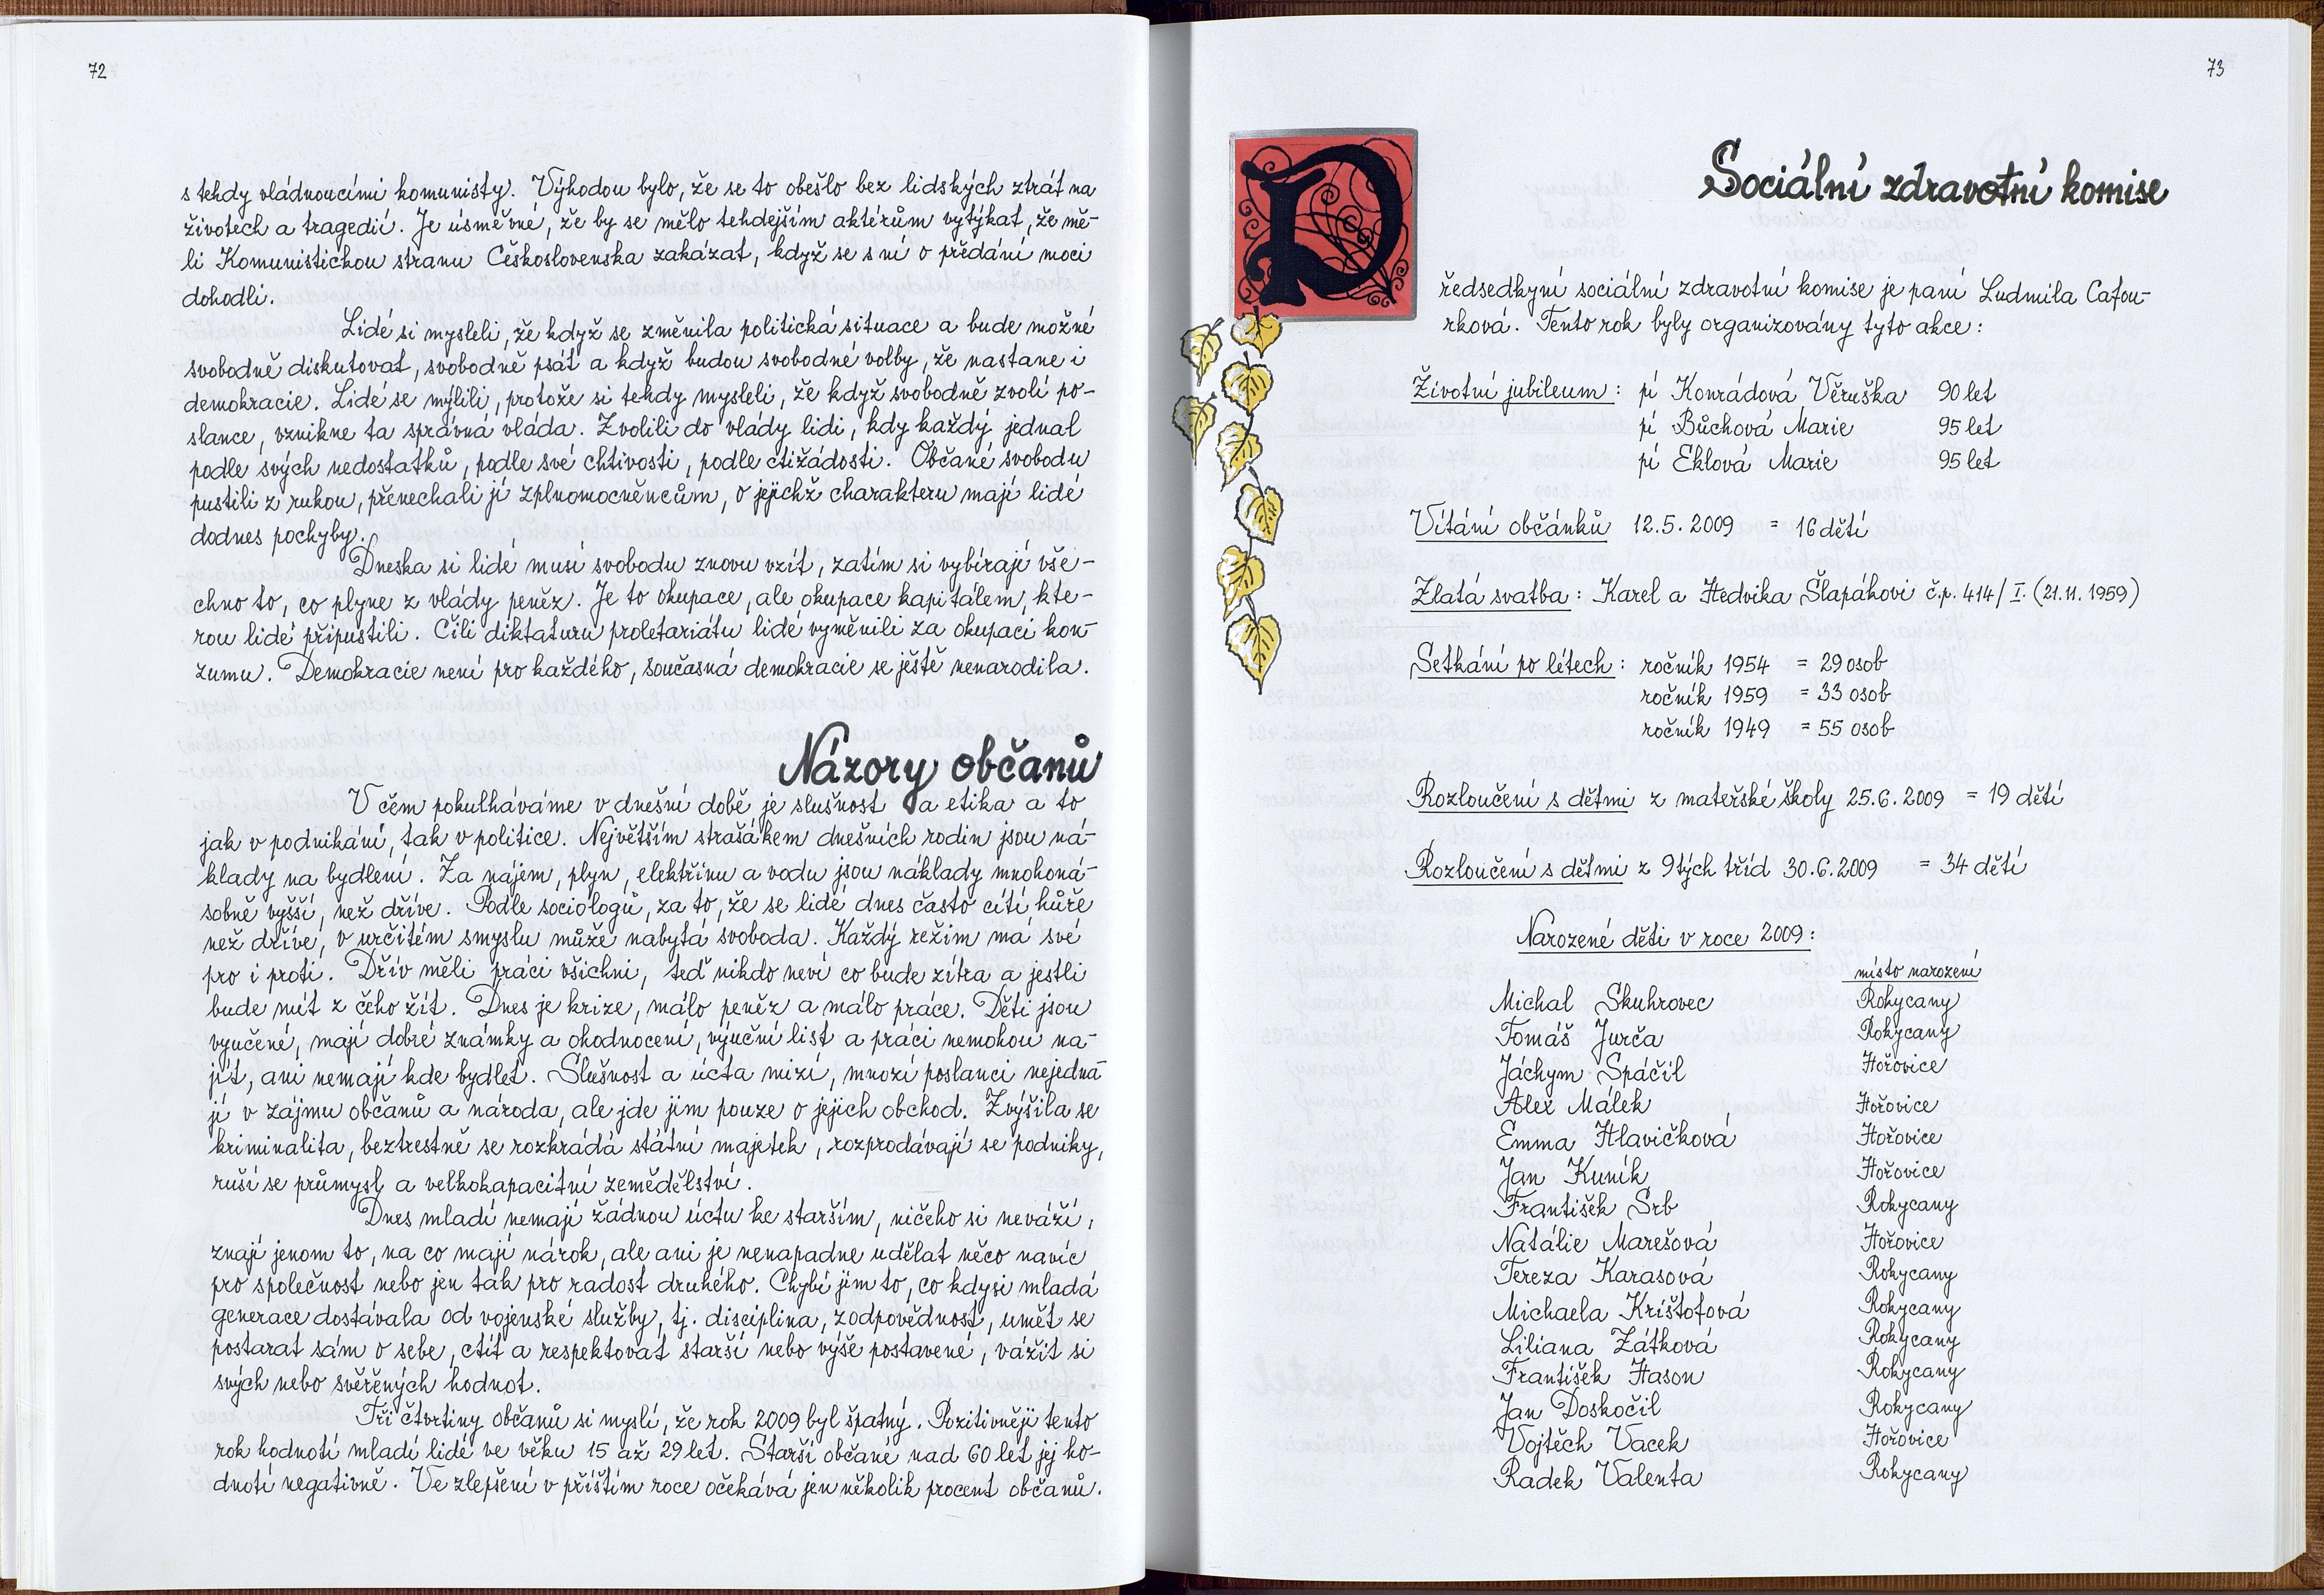 72
s tehdy vládnoucími komunisty. Výhodou bylo, že se to obešlo bez lidských ztrát na
životech a tragedií. Je úsměvné, že by se mělo tehdejším aktérům vytýkat, že mě-
li Komunistickou stranu Československa zakázat, když se s ní o předání moci
dohodli.
Lidé si mysleli, že když se změnila politická situace a bude možné
svobodně diskutovat, svobodně psát a když budou svobodné volby, že nastane i
demokracie. Lidé se mýlili, protože si tehdy mysleli, že když svobodně zvolí po-
slance, vznikne ta správná vláda. Zvolili do vlády lidi, kdy každý jednal
podle svých nedostatků, podle své chtivosti, podle ctižádosti. Občané svobodu
pustili z rukou, přenechali jí zplnomocněncům, o jejichž charakteru mají lidé
dodnes pochyby.
Dneska si lidé musí svobodu znovu vzít, zatím si vybírají vše-
chno to, co plyne z vlády peněz. Je to okupace, ale okupace kapitálem, kte-
rou lidé připustili. Čili diktaturu proletariátu lidé vyměnili za okupaci kon-
zumu. Demokracie není pro každého, současná demokracie se ještě nenarodila.
Názory občanů
V čem pokulháváme v dnešní době je slušnost a etika a to
jak v podnikání, tak v politice. Největším strašákem dnešních rodin jsou ná-
klady na bydlení. Za nájem, plyn, elektřinu a vodu jsou náklady mnohoná-
sobně vyšší, než dříve. Podle sociologů, za to, že se lidé dnes často cítí hůře
než dříve, v určitém smyslu může nabytá svoboda. Každý režim má své
pro i proti. Dřív měli práci všichni, teď nikdo neví co bude zítra a jestli
bude mít z čeho žít. Dnes je krize, málo peněz a málo práce. Děti jsou
vyučené, mají dobré známky a ohodnocení, výuční list a práci nemohou na-
jít, ani nemají kde bydlet. Slušnost a úcta mizí, mnozí poslanci nejedna-
jí v zájmu občanů a národa, ale jde jim pouze o jejich obchod. Zvýšila se
kriminalita, beztrestně se rozkrádá státní majetek, rozprodávají se podniky,
ruší se průmysl a velkokapacitní zemědělství.
Dnes mladí nemají žádnou úctu ke starším, ničeho si neváží,
znají jenom to, na co mají nárok, ale ani je nenapadne udělat něco navíc
pro společnost nebo jen tak pro radost druhého. Chybí jim to, co kdysi mladá
generace dostávala od vojenské služby, tj. disciplina, zodpovědnost, umět se
postarat sám o sebe, ctít a respektovat starší nebo výše postavené, vážit si
svých nebo svěřených hodnot.
Tři čtvrtiny občanů si myslí, že rok 2009 byl špatný. Pozitivněji tento
rok hodnotí mladí lidé ve věku 15 až 29 let. Starší občané nad 60 let jej ho-
dnotí negativně. Ve zlepšení v příštím roce očekává jen několik procent občanů.
73
Sociální zdravotní komise
Předsedkyní sociální zdravotní komise je paní Ludmila Cafou-
rková. Tento rok byly organizovány tyto akce:
Životní jubileum: pí Konrádová Věruška 90 let
pí Bůchová Marie 95 let
pí Eklová Marie 95 let
Vítání občánků 12.5.2009 = 16 dětí
Zlatá svatba: Karel a Hedvika Šlapákovi č.p. 414/I. (21.11.1959)
Setkání po létech: ročník 1954 = 29 osob
ročník 1959 = 33 osob
ročník 1949 = 55 osob
Rozloučení s dětmi z mateřské školy 25.6.2009 = 19 dětí
Rozloučení s dětmi z 9tých tříd 30.6.2009 = 34 dětí
Narozené děti v roce 2009:
místo narození
Michal Skuhrovec Rokycany
Tomáš Jurča Rokycany
Jáchym Spáčil Hořovice
Alex Málek Hořovice
Emma Hlavičková Hořovice
Jan Kuník Hořovice
František Srb Rokycany
Natálie Marešová Hořovice
Tereza Karasová Rokycany
Michaela Krištofová Rokycany
Liliana Zátková Rokycany
František Hason Rokycany
Jan Doskočil Rokycany
Vojtěch Vacek Hořovice
Radek Valenta Rokycany